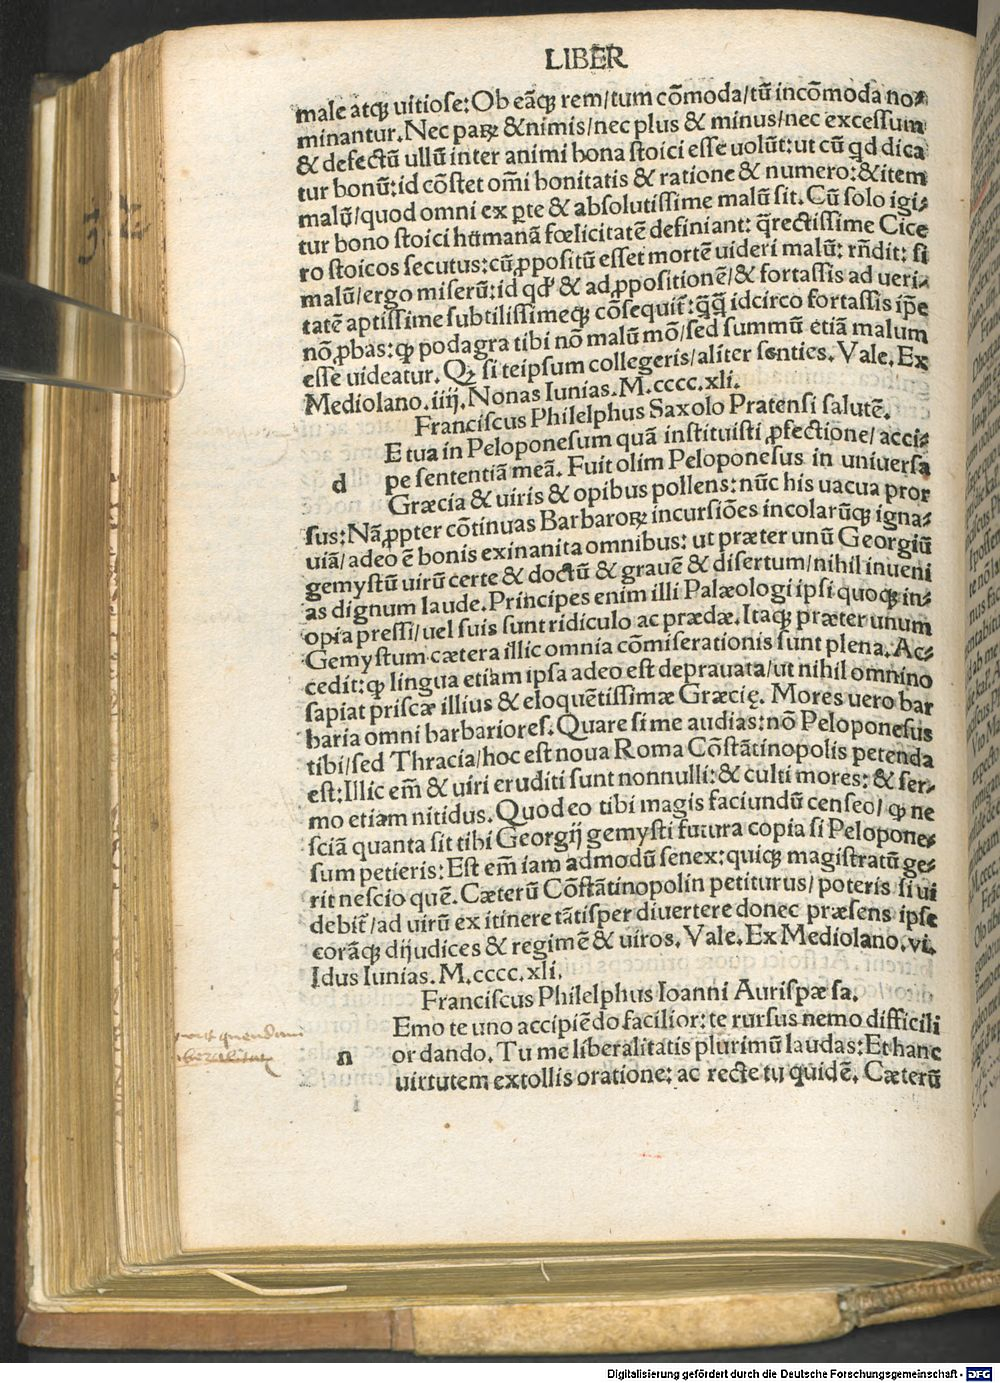 LIBER
male atqꝫ uitiose: Ob eãqꝫ rem/tum cõmoda/tũ incõmoda no-
minantur. Nec paꝝ & nimis/nec plus & minus/nec excessum
& defectũ ullũ inter animi bona stoici esse uolũt: ut cũ qd dica
tur bonũ: id cõstet om̃i bonitatis & ratione & numero: & item
malũ/quod omni ex ꝑte & absolutissime malũ sit. Cũ solo igi-
tur bono stoici humanã fœlicitatē definiant: q̃rectissime Cice
ro stoicos secutus: cũ ꝓpositũ esset mortē uideri malũ: rñdit: si
malũ/ergo miserũ: id qđ & ad ꝓpositionē/& fortassis ad ueri-
tatē aptissime subtilissimeqꝫ cõsequit̃: q̃q̃ idcirco fortassis ip̃e
nõ ꝓbas: ꝙ podagra tibi nõ malũ mõ/sed summũ etiã malum
esse uideatur. Qꝫ si teipsum collegeris/aliter senties. Vale. Ex
Mediolano. iiij. Nonas Iunias. M. cccc. xli.
Franciscus Philelphus Saxolo Pratensi salutē.
d E tua in Peloponesum quã instituisti ꝓfectione/acci-
pe sententiã meã. Fuit olim Peloponesus in uniuersa
Græcia & uiris & opibus pollens: nũc his uacua pror
sus: Nã ꝓpter cõtinuas Barbaroꝝ incursiões incolarũqꝫ igna-
uiã/adeo ē bonis exinanita omnibus: ut præter unũ Georgiũ
gemystũ uirũ certe & doctũ & grauē & disertum/nihil inueni
as dignum laude. Principes enim illi Palæologi ipsi quoqꝫ in-
opia pressi/uel suis sunt ridiculo ac prædæ. Itaqꝫ præter unum
Gemystum cætera illic omnia cõmiserationis sunt plena. Ac-
cedit: ꝙ lingua etiam ipsa adeo est deprauata/ut nihil omnino
sapiat priscæ illius & eloquētissimæ Græcię. Mores uero bar
baria omni barbariores. Quare si me audias: nõ Peloponesus
tibi/sed Thracia/hoc est noua Roma Cõstãtinopolis petenda
est: Illic em̃ & uiri eruditi sunt nonnulli: & culti mores: & ser-
mo etiam nitidus. Quod eo tibi magis faciundũ censeo/ꝙ ne
sciã quanta sit tibi Georgij gemysti futura copia si Pelopone-
sum petieris: Est em̃ iam admodũ senex: quiqꝫ magistratũ ge-
rit nescio quē. Cæterũ Cõstãtinopolin petiturus/poteris si ui
debit̃/ad uirũ ex itinere tãtisper diuertere donec præsens ipse
corãqꝫ dijudices & regimē & uiros. Vale. Ex Mediolano. vi.
Idus Iunias. M. cccc. xli.
Franciscus Philelphus Ioanni Aurispæ sa.
n Emo te uno accipiēdo facilior: te rursus nemo difficili
or dando. Tu me liberalitatis plurimũ laudas: Et hanc
uirtutem extollis oratione: ac recte tu quidē. Cæterũ
quendam
Digitalisierung gefördert durch die Deutsche Forschungsgemeinschaft - DFG